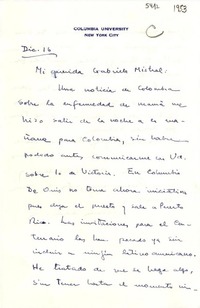 5812
1953
C
COLUMBIA UNIVERSITY
NEW YORK CITY
Dic. 16
Mi querida Gabriela Mistral:
Una noticia de Colombia
sobre la enfermedad de mamá me
hizo salir de la noche a la ma-
ñana para Colombia, sin haber
podido antes comunicarme con Ud.
sobre lo a Victoria. En Columbia
De Onís no toma ahora iniciativas
pues deja el puesto y sale a Puerto
Rico. Las invitaciones para el Cen-
tenario las han pasado ya sin
incluir a ningún latino americano.
He tratado de que se haga algo,
sin tener hasta el momento nin-